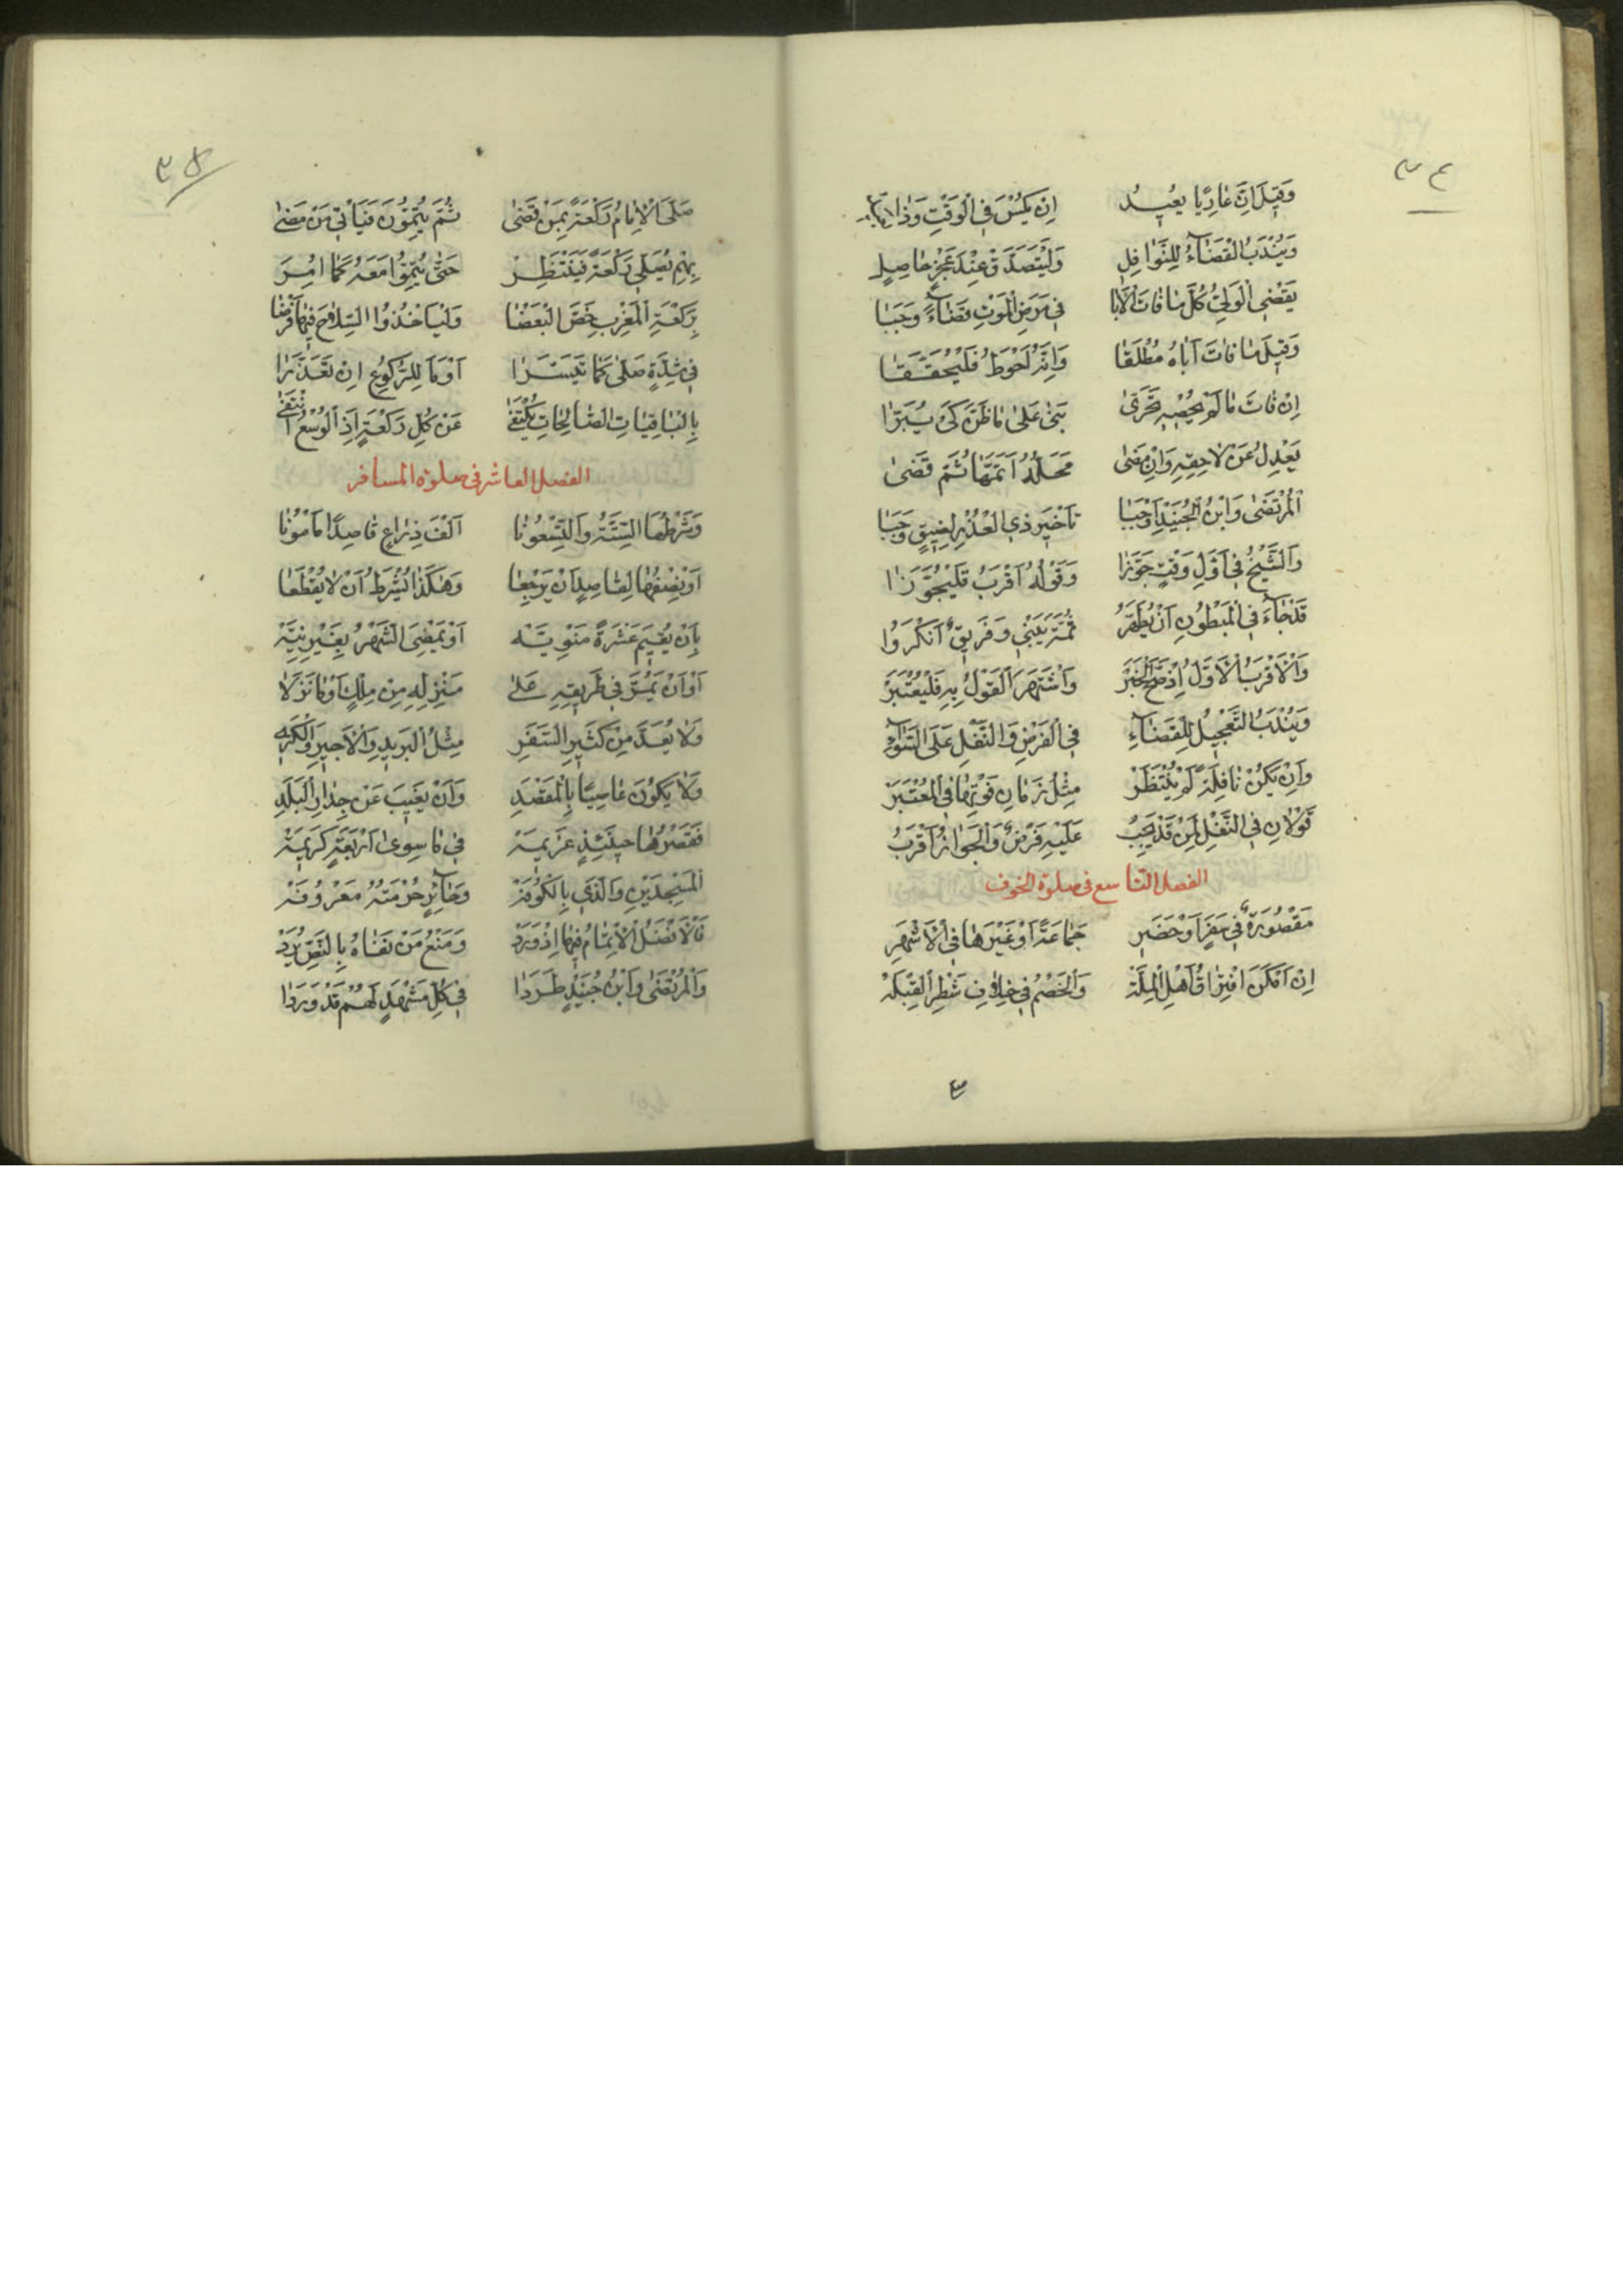 وَقِيلَ اِنَّ عَارِيًا يُعِيدُ اِنْ يَكْسُ فِي الْوَقْتِ وَذَا
وَيُنْدَبُ الْقَضَآءُ لِلنَّوَافِلِ وَلْيَتَصَدَّقْ عِنْدَ عَجْزٍ حَاصِلٍ
يَقْضِي الْوَلِيُّ كُلَّ مَا فَاتَ الْاَبَا فِي مَرَضِ الْمَوْتِ قَضَآءً وَجَبَا
وَقِيلَ مَا فَاتَ اَبَاهُ مُطْلَقَا وَاِنَّهُ لَحْوَطُ فَلْيُحَقَّقَا
اِنْ فَاتَ مَا لَمْ يُحْصِهِ تَحَرَّى بَنٰى عَلٰى مَا ظَنَّ كَيْ يُبَرَّا
يَعْدِلُ عَنْ لَاحِقِهِ وَاِنْ مَضٰى مَحَلُّهُ اَتَمَّهَا ثُمَّ قَضٰى
اَلْمُرْتَضٰى وَابْنُ الْجُنَيْدِ اَوْجَبَا تَاْخِيرَ ذِي الْعُذْرِ لِضِيقٍ وَجَبَا
وَالشَّيْخُ فِي اَوَّلِ وَقْتٍ جَوَّزَا وَقَوْلُهُ اَقْرَبُ فَلْيُجَوَّزَا
قَدْ جَآءَ فِي الْمَبْطُونِ اَنْ يُطَهِّرُ ثُمَّتَ يَبْنِي وَفَرِيقٌ اَنْكَرُوا
وَالْاَقْرَبُ الْاَوَّلُ اِذْ صَحَّ الْخَبَرْ وَاشْتَهَرَ الْقَوْلُ بِهِ فَلْيُعْتَبَرْ
وَيُنْدَبُ التَّعْجِيلُ لِلْقَضَآءِ فِي الْفَرْضِ وَالنَّفْلِ عَلَى السَّوَآءِ
وَاِنْ يَكُنْ نَافِلَةً لَمْ يُنْتَظَرْ مِثْلُ زَمَانِ فَوْتِهَا فِي الْمُعْتَبَرْ
قَوْلَانِ فِي النَّفْلِ لِمَنْ قَدْ يَجِبُ عَلَيْهِ فَرْضٌ وَالْجَوَازُ اَقْرَبُ
الفصل التاسع في صلوة الخوف
مَقْصُورَةٌ فِي سَفَرٍ اَوْ حَضَرِ جَمَاعَةً اَوْ غَيْرَهَا فِي الْاَشْهَرِ
اِنْ اَمْكَنَ افْتِرَاقُ اَهْلِ الْمِلَّةْ وَالْخَصْمُ فِي خِلَافِ شَطْرِ الْقِبْلَةْ
صَلَّى الْاِمَامُ رَكْعَةً بِمَنْ قَضٰى ثُمَّ يُتِمُّونَ فَيَاْتِي مَنْ مَضٰى
بِهِمْ يُصَلِّي رَكْعَةً فَيَنْتَظِرْ حَتّٰى يُتِمُّوا مَعَهُ كَمَا اُمِرَ
بِرَكْعَةِ الْمَغْرِبِ خَصَّ الْبَعْضَا وَلْيَاْخُذُوا السِّلَاحَ فِيهَا فَرْضَا
فِي شِدَّةٍ صَلَّى كَمَا تَيَسَّرَا اَوْمَا لِلرُّكُوعِ اِنْ تَعَذَّرَا
بِالْبَاقِيَاتِ الصَّالِحَاتِ يُكْتَفٰى عَنْ كُلِّ رَكْعَةٍ اِذِ الْوُسْعُ انْتَفٰى
الفصل العاشر في صلوة المسافر
وَشَرْطُهَا السِّتَّةُ وَالتِّسْعُونَا اَلْفَ ذِرَاعٍ قَاصِدًا مَاْمُونَا
اَوْ نِصْفُهَا لِقَاصِدٍ اَنْ يَرْجِعَا وَهٰكَذَا يُشْرَطُ اَنْ لَا يُقْطَعَا
بِاَنْ يُقِيمَ عَشْرَةً مَنْوِيَّه اَوْ يَمْضِيَ الشَّهْرُ بِغَيْرِ نِيَّةْ
اَوْ اَنْ يَمُرَّ فِي طَرِيقِهِ عَلٰى مَنْزِلِهِ مِنْ مِلْكٍ اَوْ مَا نَزَلَا
وَلَا يُعَدَّ مِنْ كَثِيرِ السَّفَرِ مِثْلُ الْبَرِيدِ وَالْاَجِيرِ وَالْكَرِي
وَلَا يَكُونَ عَاصِيًا بِالْمَقْصَدِ وَاَنْ يَغِيبَ عَنْ جِدَارِ الْبَلَدِ
فَقَصْرُهَا حِينَئِذٍ عَزِيمَةْ فِي مَا سِوٰى اَرْبَعَةٍ كَرِيمَةْ
اَلْمَسْجِدَيْنِ وَالَّذِي بِالْكُوفَةْ وَحَآئِرٍ حُرْمَتُهُ مَعْرُوفَةْ
فَالْاَفْضَلُ الْاِتْمَامُ فِيهَا اِذْ وَرَدْ وَمَنْعُ مَنْ نَفَاهُ بِالنَّصِّ يُرَدْ
وَالْمُرْتَضٰى وَابْنُ جُنَيْدٍ طَرَدَا فِي كُلِّ مَشْهَدٍ لَهُمْ قَدْ وَرَدَا